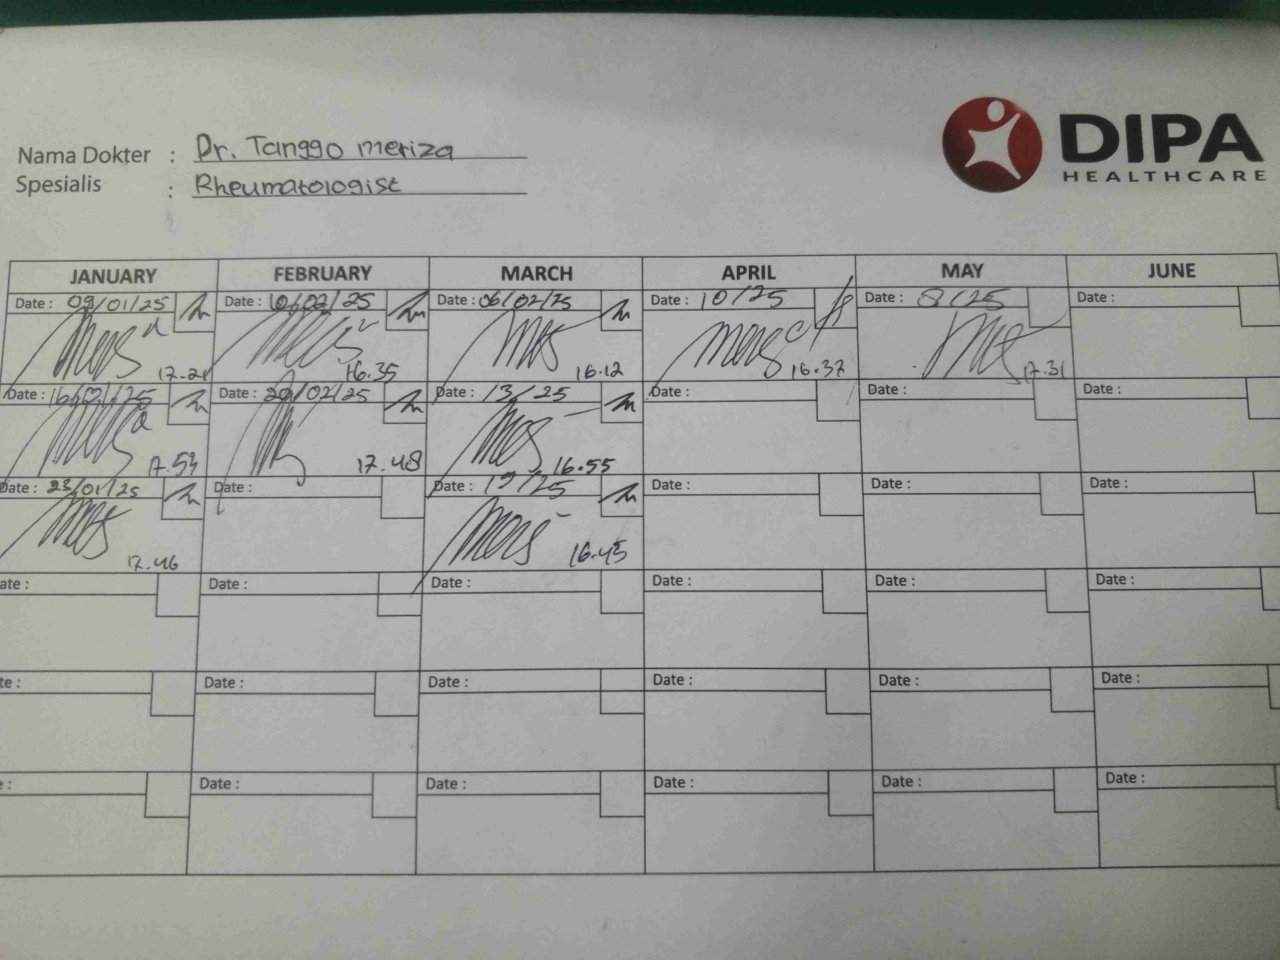 DIPA
HEALTHCARE
Nama Dokter : Dr. Tanggo meriza
Spesialis : Rheumatologist
JANUARY FEBRUARY MARCH APRIL MAY JUNE
Date : 09/01/25 Date : 06/02/25 Date : 06/02/25 Date : 10/25 Date : 8/25 Date :
17.21 16.35 16.12 16.37 17.31
Date : 16/01/25 Date : 20/02/25 Date : 13/25 Date : Date : Date :
17.59 17.48 16.55
Date : 23/01/25 Date : Date : 19/25 Date : Date : Date :
17.46 16.45
ate : Date : Date : Date : Date : Date :
te : Date : Date : Date : Date : Date :
e : Date : Date : Date : Date : Date :